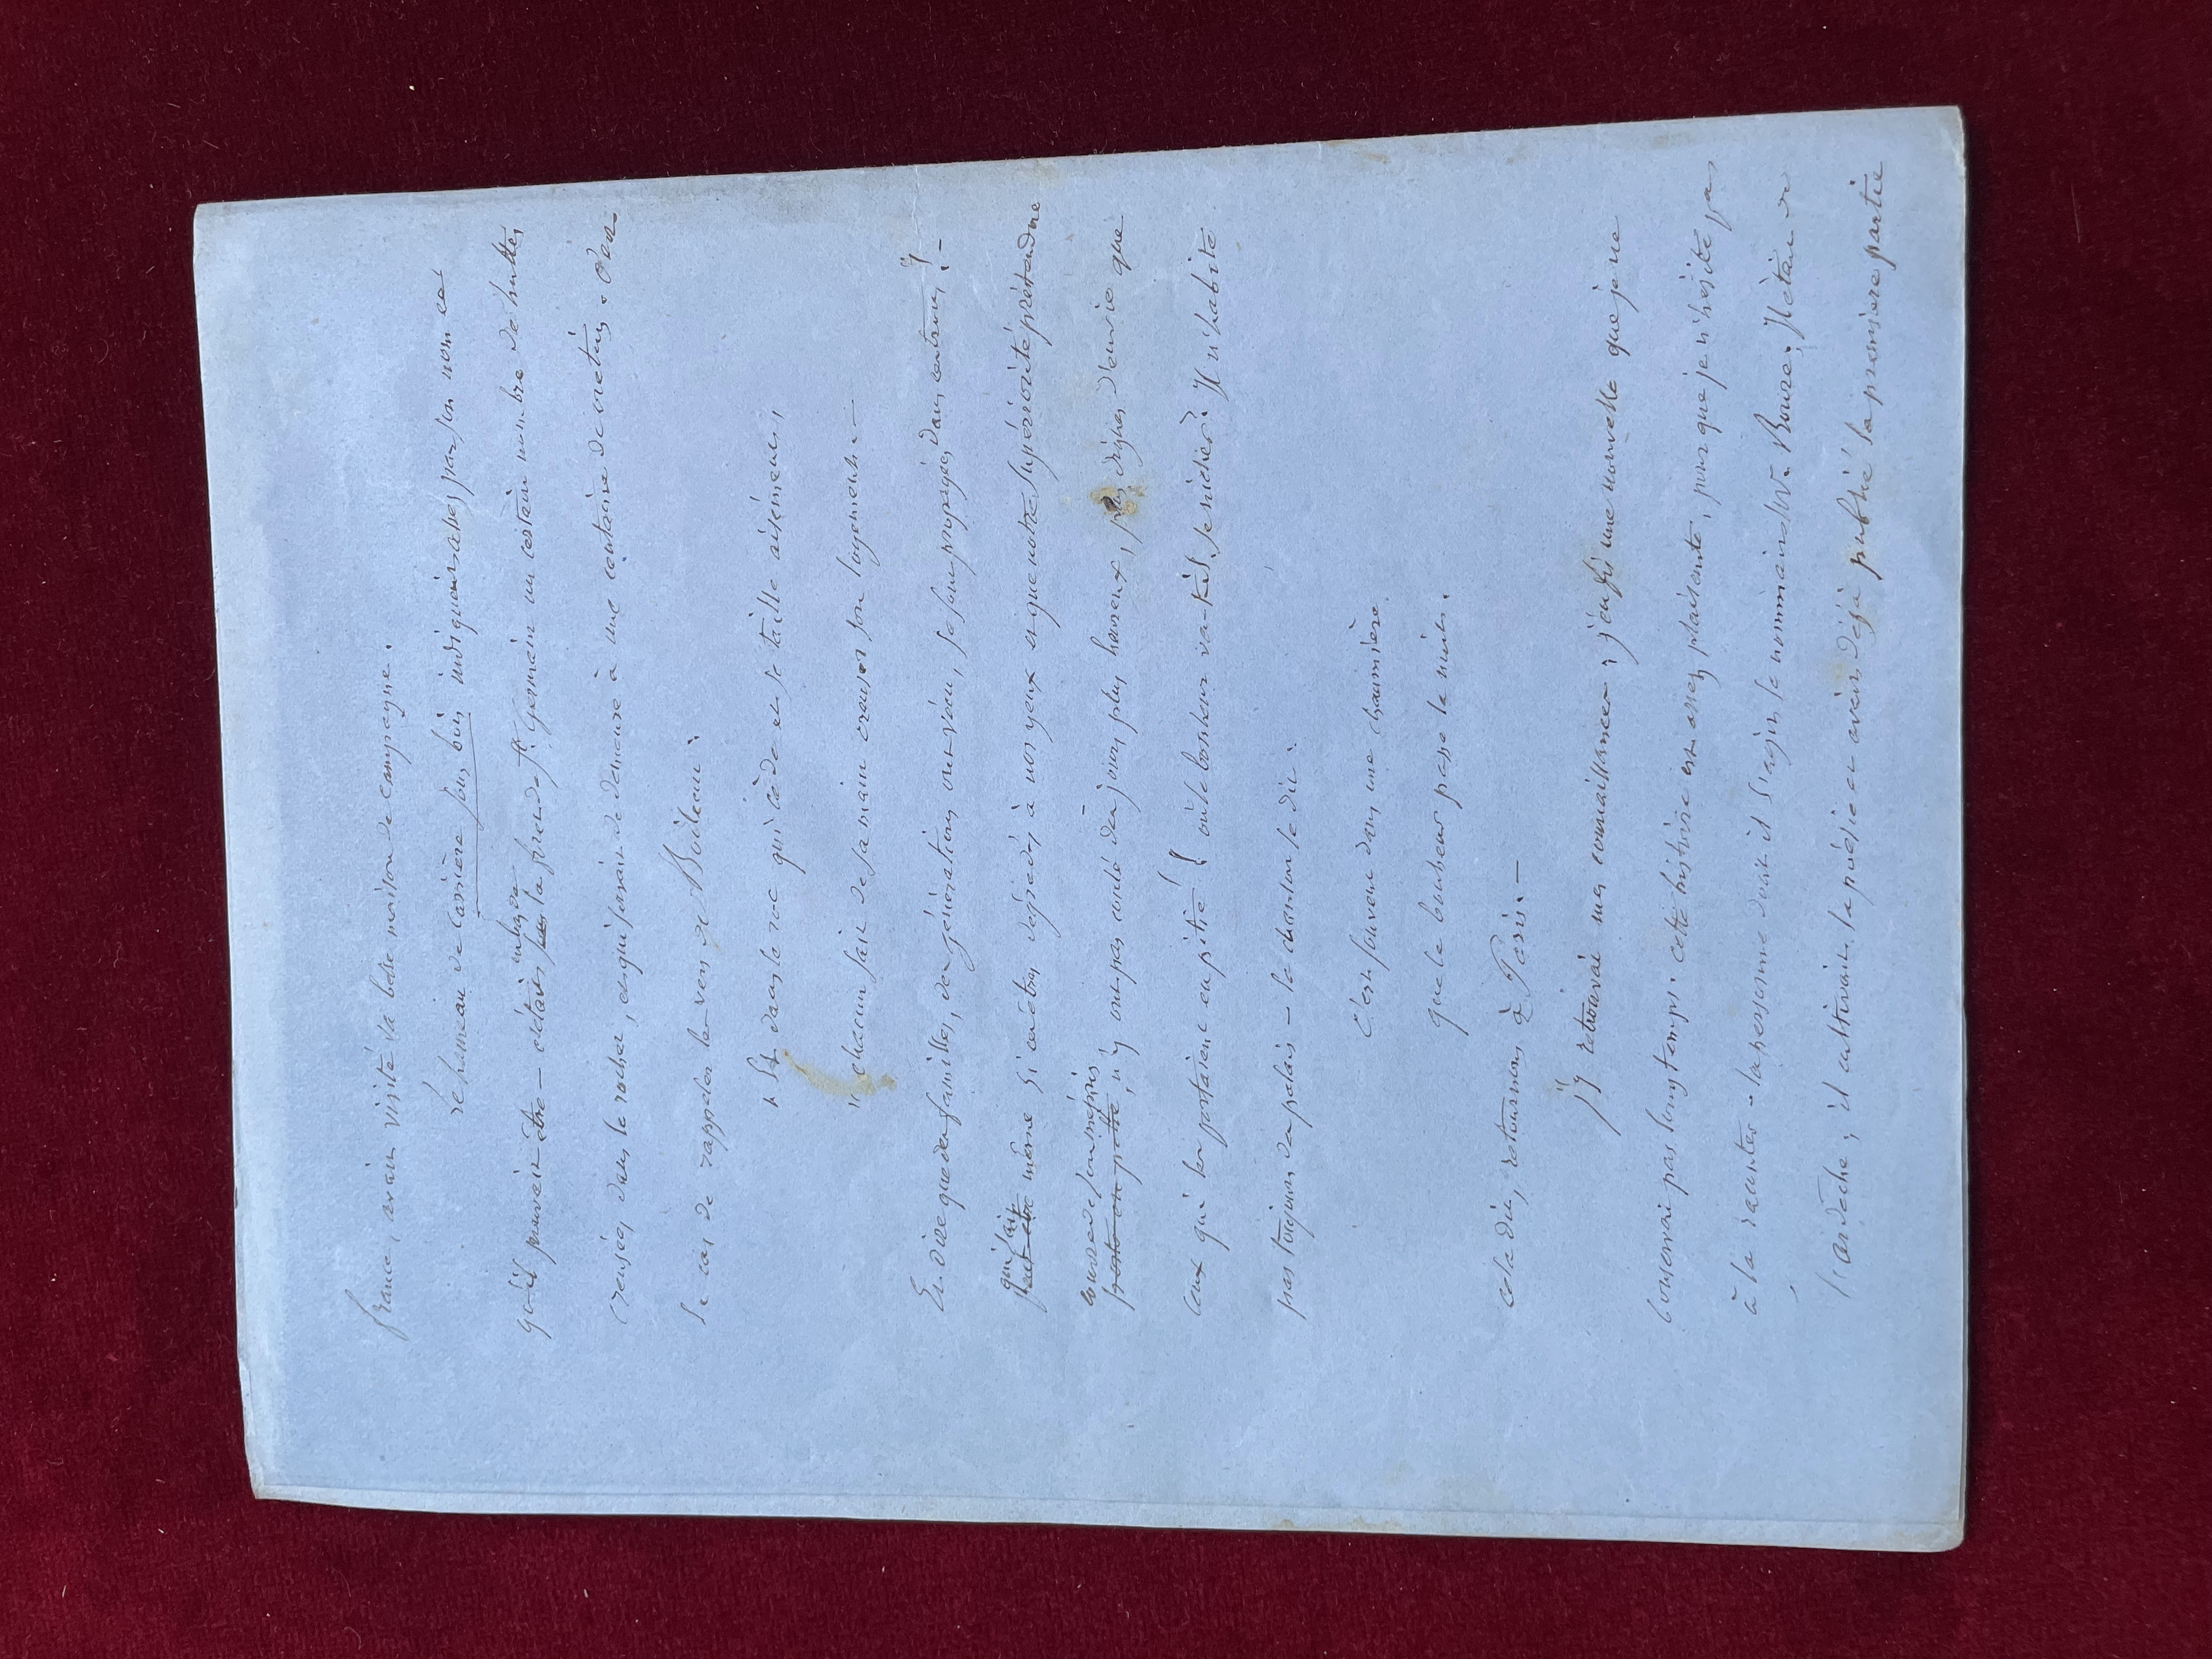 france, avait visité sa belle maison de campagne.
le hameau de Carrière sous bois indiquait assez par son nom ce
qu'il pouvait être – c'était sur en haut de la foret de St. Germain un certain nombre de huttes
creusées dans le rocher, et qui servait de demeure à une centaine de crétins. C'est
le cas de rappeler les vers de Boileau:
" Et dans le roc qui cède et se taille aisément,
" chacun sait de sa main creuser son logement. –
Et dire que des familles, des générations ont vécu, se sont propagées dans ces trous! –
qui sait
peut être même si ces êtres dégradés à nos yeux et que notre supériorité prétendue
couvre de son mépris
, n'y ont pas coulé des jours plus heureux, plus dignes d'envie que
ceux qui les prenaient en pitié! où le bonheur va-t-il se nicher? Il n'habite
pas toujours des palais – la chanson le dit:
C'est souvent dans une chaumière
que le bonheur passe la nuit.
cela dit, retournons à Paris. –
j'y retrouvai mes connaissances; j'en fis une nouvelle que je ne
conservai pas longtemps: cette histoire est assez plaisante, pour que je n'hésite pas
à la raconter – la personne dont il s'agit se nommait Mr. Boure. Il était de
l'ardèche; il cultivait la poésie et avait déjà publié la première partie